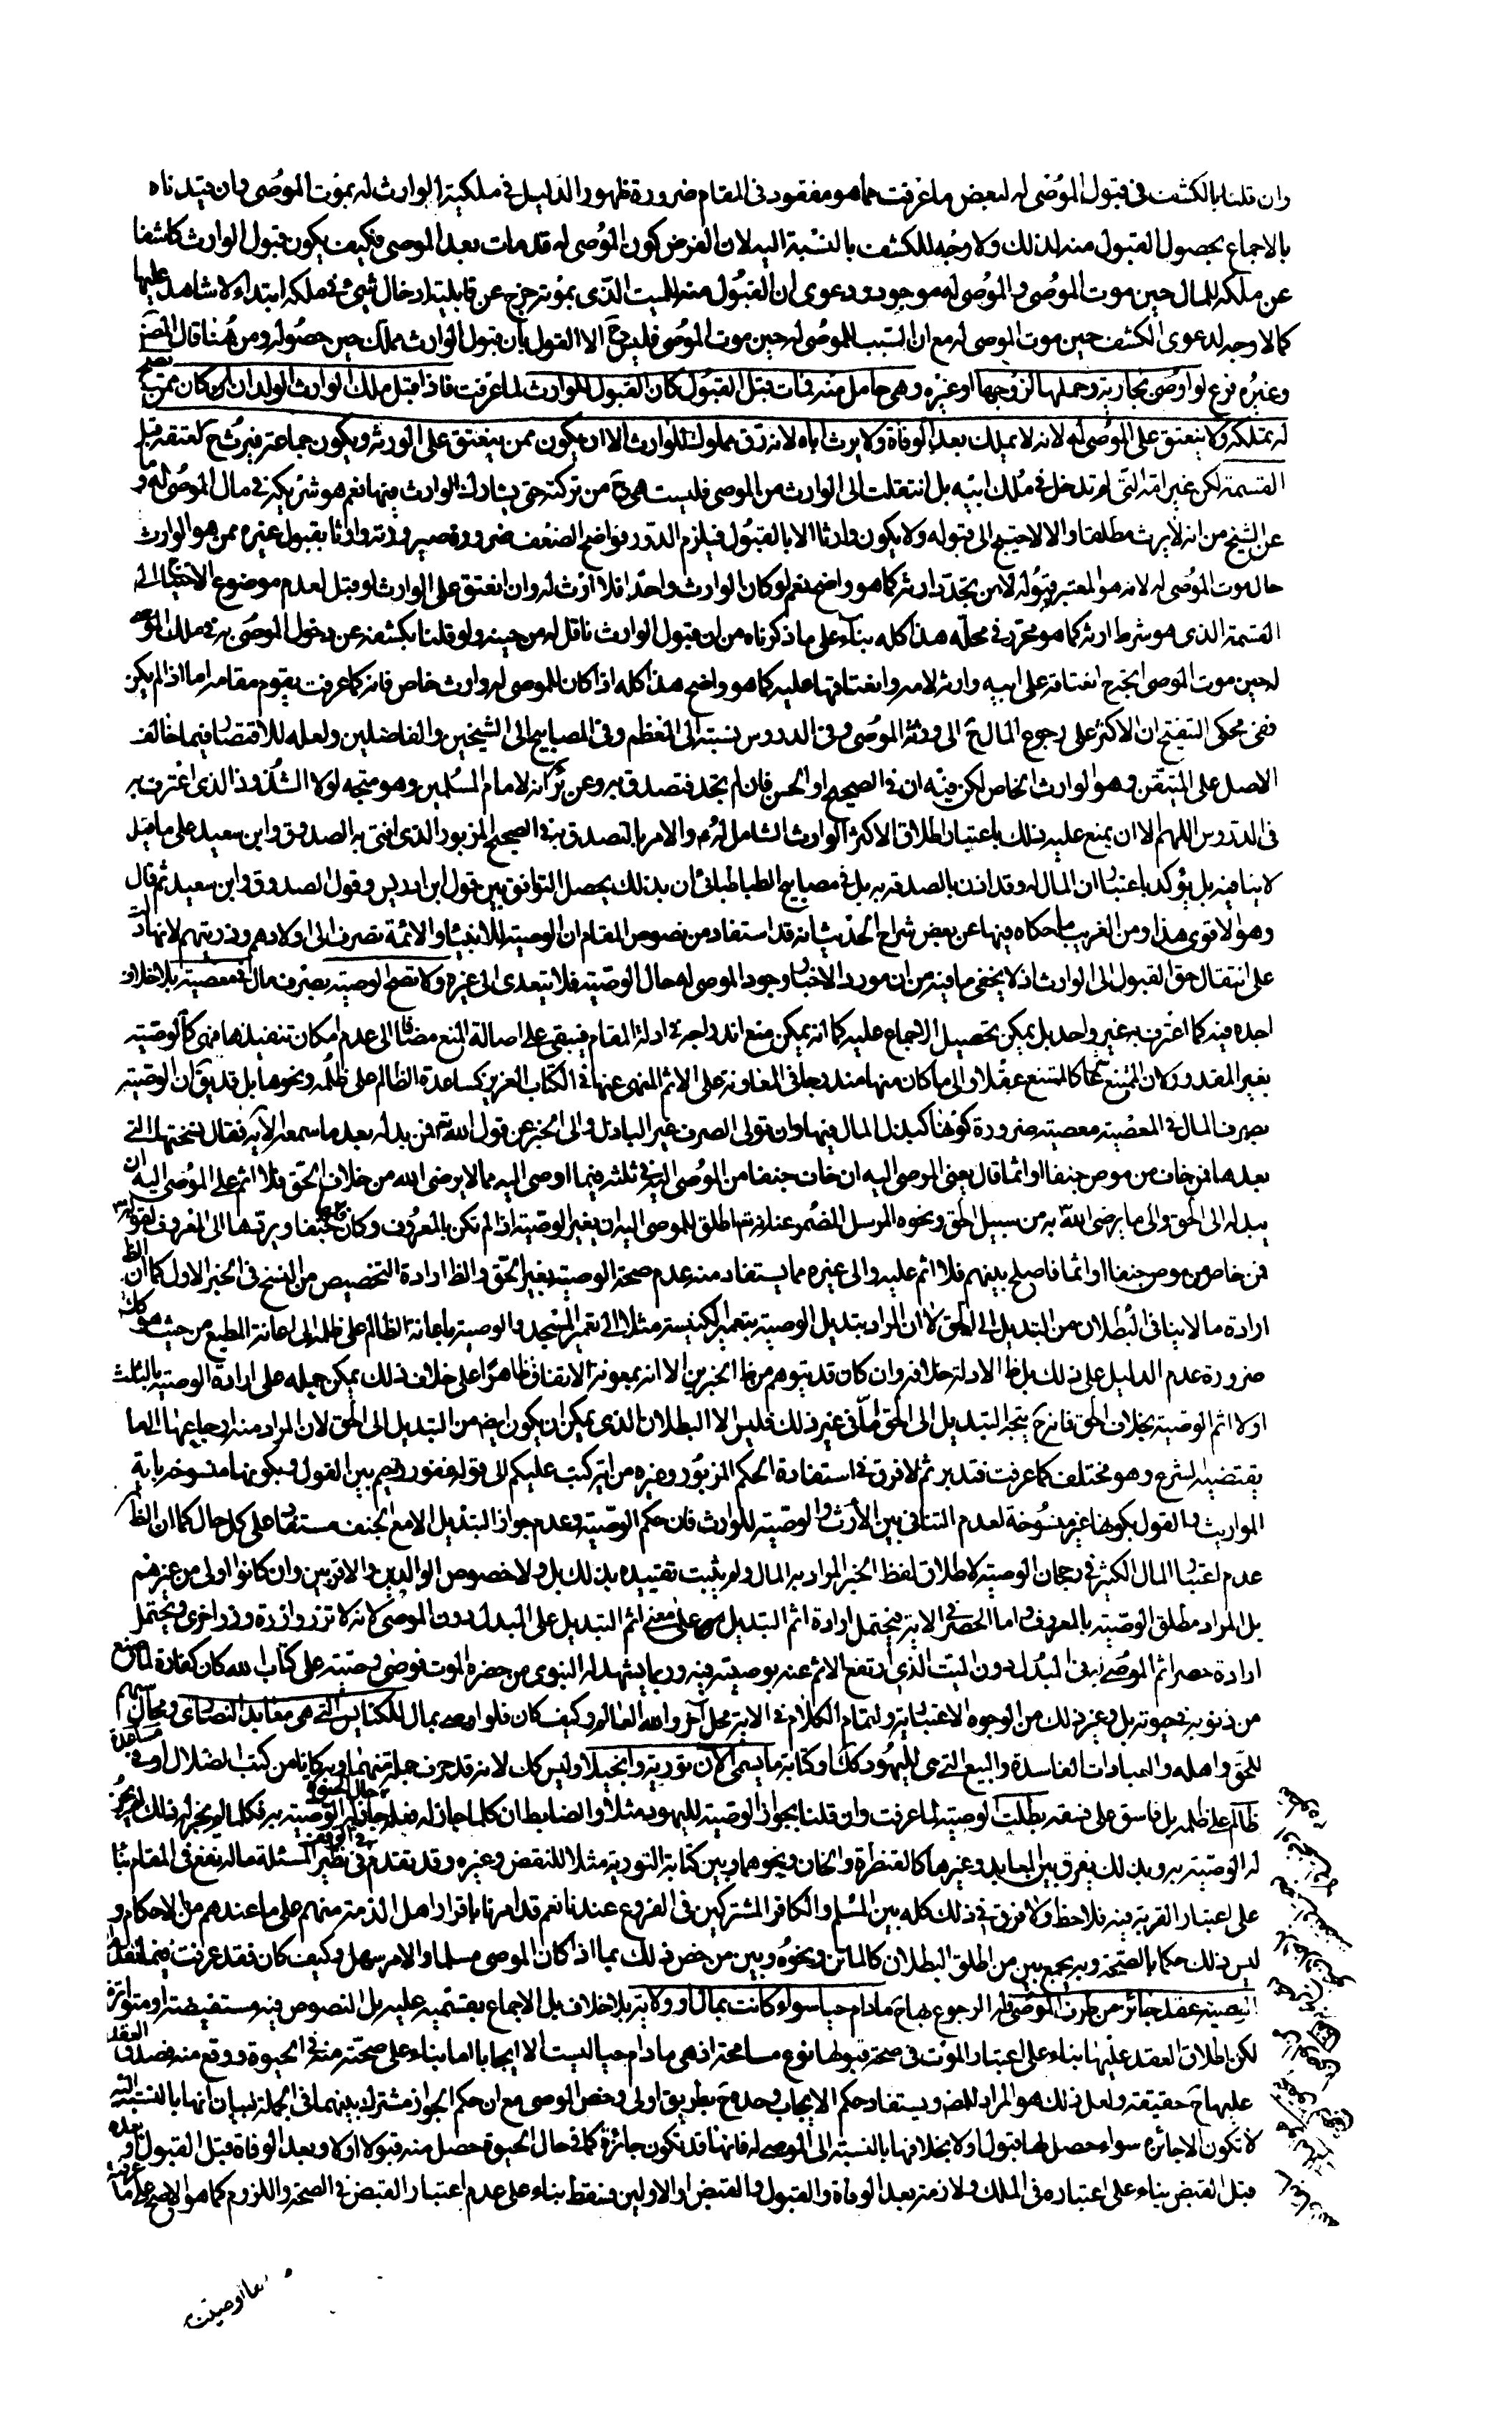 وان قلنا بالكشف فى قبول الموصى له لبعض ما عرفت مما هو مفقود فى المقام ضرورة ظهور الدليل فى ملكية الوارث له بموت الموصى وان قيدناه
بالاجماع بحصول القبول منه لذلك ولا وجه للكشف بالنسبة اليه لان الفرض كون الموصى له قد مات بعد الموصى فكيف يكون قبول الوارث كاشفا
عن ملكه للمال حين موت الموصى والموصى له موجود ودعوى ان القبول منه للميت الذى بموته خرج عن قابلية ادخال شىء فى ملكه ابتداء لا شاهد عليها
كما لا وجه لدعوى الكشف حين موت الموصى له مع ان السبب للموصى له حين موت الموصى فليس ح الا القول بان قبول الوارث مملك حين حصوله ومن هنا قال المص
وغيره فرع لو اوصى بجارية وحملها لزوجها او غيره وهى حامل منه فمات قبل القبول كان القبول للوارث لما عرفت فاذا قبل ملك الوارث الولد ان كان ممن يصح
له تملكه ولا ينعتق على الموصى له لانه لا يملك بعد الوفاة ولا يرث اباه لانه رق مملوك للوارث الا ان يكون ممن ينعتق على الورثة ويكون جماعة فيرث ح لعتقه قبل
القسمة لكن غير امه التى لم تدخل فى ملك ابيه بل انتقلت الى الوارث من الموصى فليست هى ح من تركته حتى يشارك الوارث فيها نعم هو شريكه فى مال الموصى له وما
عن الشيخ من انه لا يرث مطلقا والا لاحتيج الى قبوله ولا يكون وارثا الا بالقبول فيلزم الدور فواضح الضعف ضرورة صيرورته وارثا بقبول غيره ممن هو الوارث
حال موت الموصى له لانه هو المعتبر قبوله لا من تجدد ارثه كما هو واضح نعم لو كان الوارث واحدا فلا ارث له وان انعتق على الوارث لو قبل لعدم موضوع الاحتياج الى
القسمة الذى هو شرط ارثه كما هو محرر فى محله هذا كله بناء على ما ذكرناه من ان قبول الوارث ناقل له من حينه ولو قلنا بكشفه عن دخول الموصى به فى ملك الموصى
له حين موت الموصى اتجه ح انعتاقه على ابيه وارثه لامه وانعتاقها عليه كما هو واضح هذا كله اذا كان للموصى له وارث خاص فانه كما عرفت يقوم مقامه اما اذا لم يكن
ففى محكى التنقيح ان الاكثر على رجوع المال ح الى ورثة الموصى وفى الدروس نسبته الى المعظم وفى المصابيح الى الشيخين والفاضلين ولعله للاقتصار فيما خالف
الاصل على المتيقن وهو الوارث الخاص لكن فيه ان فى الصحيح او الحسن فان لم تجد فتصدق به وعن ئر انه لامام المسلمين وهو متجه لولا الشذوذ الذى اعترف به
فى الدروس اللهم الا ان يمنع عليه ذلك باعتبار اطلاق الاكثر الوارث الشامل له والامر بالتصدق به فى الصحيح المزبور الذى افتى به الصدوق وابن سعيد على ما قيل
لا ينافيه بل يؤكد باعتبار ان المال له وقد اذن بالصدقة به بل فى مصابيح الطباطبائى ان بذلك يحصل التوافق بين قول ابن ادريس وقول الصدوق وابن سعيد ثم قال
وهو الاقوى هذا ومن الغريب ما حكاه فيها عن بعض شراح الحديث انه قد استفاد من نصوص المقام ان الوصية للانبياء والائمة تصرف الى اولادهم وذريتهم لانها دلت
على انتقال حق القبول الى الوارث اذ لا يخفى ما فيه من ان مورد الاخبار وجود الموصى له حال الوصية فلا يتعدى الى غيره ولا تصح الوصية بصرف مال فى معصية بلا خلاف
اجده فيه كما اعترف به غير واحد بل يمكن تحصيل الاجماع عليه كما انه يمكن منع اندراجه فى ادلة المقام فيبقى على اصالة المنع مضافا الى عدم امكان تنفيذها فهى كالوصية
بغير المقدور لان الممتنع شرعا كالممتنع عقلا والى ما كان منها مندرجا فى المعاونة على الاثم المنهى عنها فى الكتاب العزيز كمساعدة الظالم على ظلمه ونحوها بل قد يق ان الوصية
بصرف المال فى المعصية معصية ضرورة كونها كبذل المال فيها وان تولى الصرف غير الباذل والى الخبر عن قول الله تعالى فمن بدله بعد ما سمعه الآية فقال نسختها التى
بعدها فمن خاف من موص جنفا او اثما قال يعنى الموصى اليه ان خاف جنفا من الموصى اليه فى ثلثه فيما اوصى اليه مما لا يرضى الله من خلاف الحق فلا اثم على الموصى اليه ان
يبدله الى الحق والى ما يرضى الله به من سبيل الحق ونحوه المرسل المضمر عنه انه تعالى اطلق للموصى اليه ان يغير الوصية اذا لم تكن بالمعروف وكان فيها جنفا ويردها الى المعروف لقوله تعالى
فمن خاف من موص جنفا او اثما فاصلح بينهم فلا اثم عليه والى غيره مما يستفاد منه عدم صحة الوصية بغير الحق والظ ارادة التخصيص من النسخ فى الخبر الاول كما ان الظ
ارادة ما لا ينافى البطلان من التبديل الى الحق لا ان المراد تبديل الوصية بتعمير الكنيسة مثلا الى تعمير المسجد والوصية باعانة الظالم على ظلمه الى اعانة المطيع من حيث هو كك
ضرورة عدم الدليل على ذلك بل ظ الادلة خلافه وان كان قد يتوهم من ظ الخبرين الا انه بمعونة الاتفاق ظاهرا على خلاف ذلك يمكن حمله على ارادة الوصية بالثلث
اولا ثم الوصية بخلاف الحق فانه ح يتجه التبديل الى الحق اما فى غير ذلك فليس الا البطلان الذى يمكن ان يكون ايض من التبديل الى الحق لان المراد منه ارجاعها الى ما
يقتضيه الشرع وهو مختلف كما عرفت فتدبر ثم لا فرق فى استفادة الحكم المزبور وغيره من اية كتب عليكم الى قوله غفور رحيم بين القول بكونها منسوخة باية
المواريث والقول بكونها غير منسوخة لعدم التنافى بين الارث والوصية للوارث فان حكم الوصية وعدم جواز التبديل الا مع الجنف مستفاد على كل حال كما ان الظ
عدم اعتبار المال الكثير فى رجحان الوصية لاطلاق لفظ الخير المراد به المال ولم يثبت تقييده بذلك بل ولا خصوص الوالدين والاقربين وان كانوا اولى من غيرهم
بل المراد مطلق الوصية بالمعروف واما الحصر فى الاية فيحتمل ارادة اثم التبديل على معنى اثم التبديل على المبدل دون الموصى لانه لا تزر وازرة وزر اخرى ويحتمل
ارادة حصر اثم الموصى به فى المبدل دون الميت الذى ارتفع الاثم عنه بوصيته فيه وربما يشهد له النبوى من حضره الموت فوضع وصيته على كتاب الله كان كفارة لما ضيع
من ذنوبه فى حيوته بل وغير ذلك من الوجوه الاعتبارية ولتمام الكلام فى الاية محل آخر والله العالم وكيف كان فلو اوصى بمال للكنايس التى هى معابد النصارى ومحال سبهم
للحق واهله والعبادات الفاسدة والبيع التى هى لليهود كك او كتابة ما يسمى الآن تورية وانجيلا وليس كك لانه قد حرف جملة منهما او بكونها من كتب الضلال او فى مساعدة
ظالم على ظلمه بل فاسق على فسقه بطلت الوصية لما عرفت وان قلنا بجواز الوصية لليهود مثلا والضابط ان كلما جاز له فعله حال الحيوة جاز له الوصية به فكلما لم يجز له ذلك لم يجز
له الوصية به وبذلك يفرق بين المعابد وغيرها كالقنطرة والخان ونحوهما وبين كتابة التورية مثلا للنقض وغيره وقد تقدم فى الوقف فى نظير المسئلة ماله نفع فى المقام بناء
على اعتبار القربة فيه فلاحظ ولا فرق فى ذلك كله بين المسلم والكافر المشتركين فى الفروع عندنا نعم قد امرنا باقرار اهل الذمة منهم على ما عندهم من الاحكام و
ليس ذلك حكما بالصحة وبه يجمع بين من اطلق البطلان كالماتن ونحوه وبين من خص ذلك بما اذا كان الموصى مسلما والامر سهل وكيف كان فقد عرفت فيما تقدم ان
الوصية عقد جائز من طرف الموصى فله الرجوع بها ح ما دام حيا سواء كانت بمال او ولاية بلا خلاف بل الاجماع بقسميه عليه بل النصوص فيه مستفيضة او متواترة
لكن اطلاق العقد عليها بناء على اعتبار الموت فى صحة قبولها نوع مسامحة اذ هى ما دام حيا ليست الا ايجابا اما بناء على صحته منه فى الحيوة ووقع منه فصدق العقد
عليها ح حقيقة ولعل ذلك هو المراد للمص ويستفاد حكم الايجاب وحده ح بطريق اولى وخص الموصى مع ان حكم الجواز مشترك بينهما فى الجملة لبيان انها بالنسبة اليه
لا تكون الا جائزه سواء حصل لها قبول اولا بخلافها بالنسبة الى الموصى له فانها قد تكون جائزة كما فى حال الحيوة حصل منه قبول اولا وبعد الوفاة قبل القبول او بعده
قبل القبض بناء على اعتباره فى الملك ولازمة بعد الوفاة والقبول والقبض او الاولين فقط بناء على عدم اعتبار القبض فى الصحة واللزوم كما هو الاصح على ما عرفته